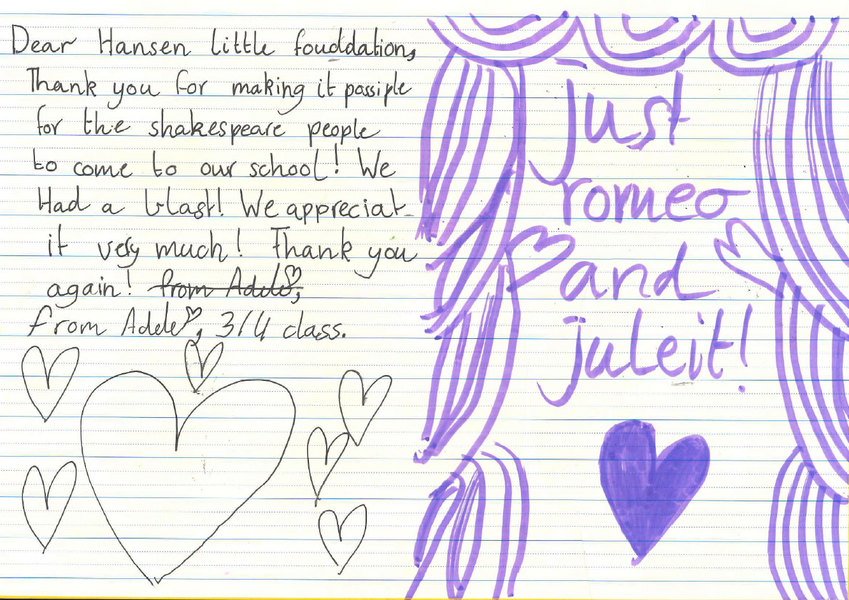 Dear Hansen little fouddation,
Thank you for making it possiple
for the shakespeare people
to come to our school! We
Had a blast! We appreciat
it very much! Thank you
again! from Adele,
from Adele, 3/4 class.
just
romeo
and
juleit!